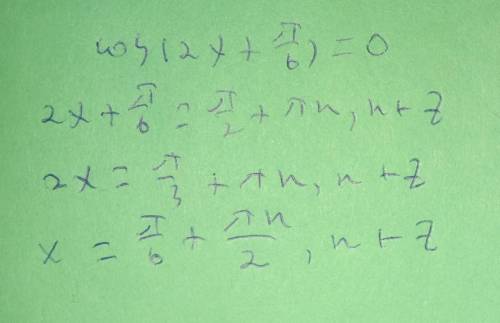 cos(2x + π/6) = 0
2x + π/6 = π/2 + πn, n ∈ Z
2x = π/3 + πn, n ∈ Z
x = π/6 + πn/2, n ∈ Z